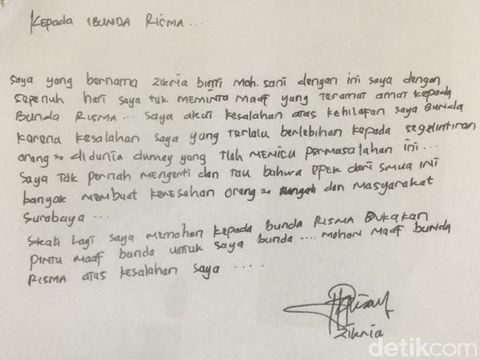 Kepada IBUNDA RISMA...
Saya yang bernama Zikria binti Moh. Sani dengan ini saya dengan
sepenuh hati saya tuk MEMINTA MAAF yang teramat amat kepada
BUNDA RISMA... Saya akui kesalahan atas kehilafan saya BUNDA
karena kesalahan saya yang terlalu berlebihan kepada segelintiran
orang2 di dunia dumay yang tlah MEMICU PERMASALAHAN ini...
Saya tak pernah mengerti dan tau bahwa EFEK dari SMUA INI
banyak membuat keresahan orang2 dan masyarakat
Surabaya...
Skali lagi saya memohon kepada bunda RISMA BUKAKAN
PINTU MAAF bunda untuk saya bunda.... mohon maaf bunda
RISMA atas kesalahan saya.....
Zikria
detikcom